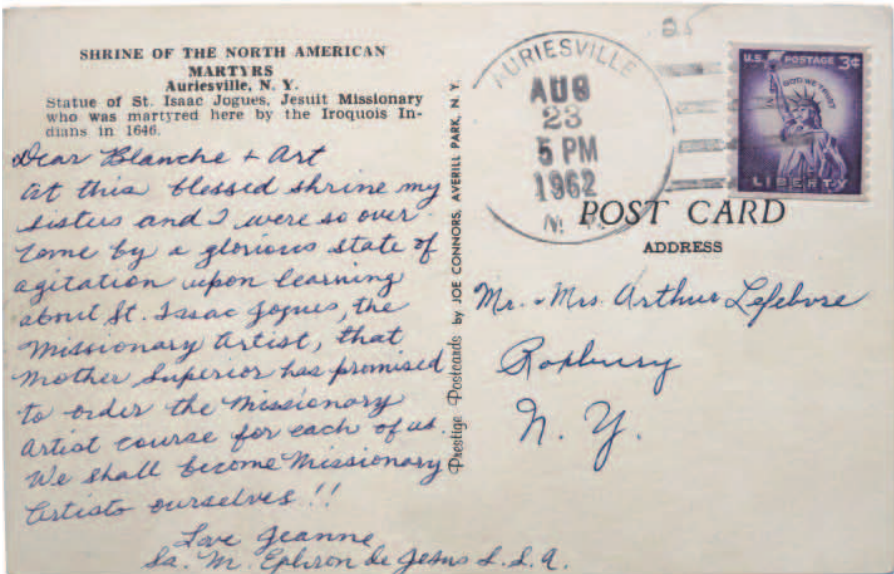 SHRINE OF THE NORTH AMERICAN
MARTYRS
Auriesville, N. Y.
Statue of St. Isaac Jogues, Jesuit Missionary
who was martyred here by the Iroquois In-
dians in 1646.
Dear Blanche + Art
At this blessed shrine my
sisters and I were so over
come by a glorious state of
agitation upon learning
about St. Isaac Jogues, the
Missionary Artist, that
Mother Superior has promised
to order the Missionary
Artist course for each of us.
We shall become Missionary
Artists ourselves!!
Love Jeanne
Sr. M. Ephron de Jesus S.S.A.
Prestige Postcards by JOE CONNORS, AVERILL PARK, N. Y.
AURIESVILLE
AUG
23
5 PM
1962
N. Y.
U.S. POSTAGE 3¢
IN GOD WE TRUST
LIBERTY
POST CARD
ADDRESS
Mr. + Mrs. Arthur Lefebvre
Roxbury
N. Y.